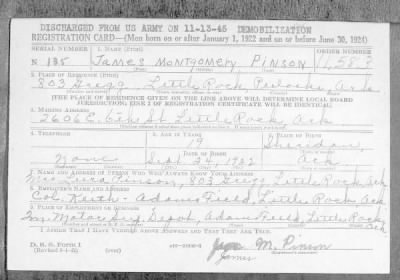 DISCHARGED FROM US ARMY ON 11-13-45 DEMOBILIZATION
REGISTRATION CARD—(Men born on or after January 1, 1922 and on or before June 30, 1924)
SERIAL NUMBER 1. NAME (Print) ORDER NUMBER
N 135 James Montgomery Pinson
2. PLACE OF RESIDENCE (Print)
803 Gregg Little Rock Pulaski Ark
[THE PLACE OF RESIDENCE GIVEN ON THE LINE ABOVE WILL DETERMINE LOCAL BOARD
JURISDICTION; LINE 2 OF REGISTRATION CERTIFICATE WILL BE IDENTICAL]
3. MAILING ADDRESS
2606 E. 6th St Little Rock, Ark
4. TELEPHONE 5. AGE IN YEARS 6. PLACE OF BIRTH
19 Sheridan
DATE OF BIRTH
None Sept 24, 1922 Ark
7. NAME AND ADDRESS OF PERSON WHO WILL ALWAYS KNOW YOUR ADDRESS
Pinson, 803 Gregg, Little Rock, Ark
8. EMPLOYER'S NAME AND ADDRESS
Col. Keith - Adams Field, Little Rock, Ark
9. PLACE OF EMPLOYMENT OR BUSINESS
Depot, Adams Field, Little Rock, Ark
I AFFIRM THAT I HAVE VERIFIED ABOVE ANSWERS AND THAT THEY ARE TRUE.
D. S. S. Form 1
M. Pinson
James